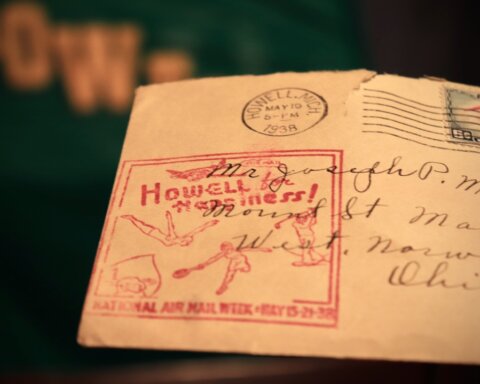 HOWELL, MICH.
MAY 19
5-PM
1938
Howell for
Happiness!
NATIONAL AIR MAIL WEEK • MAY 15-21-38
Mr Joseph P. M
Mount St Ma
West. Norw
Ohi